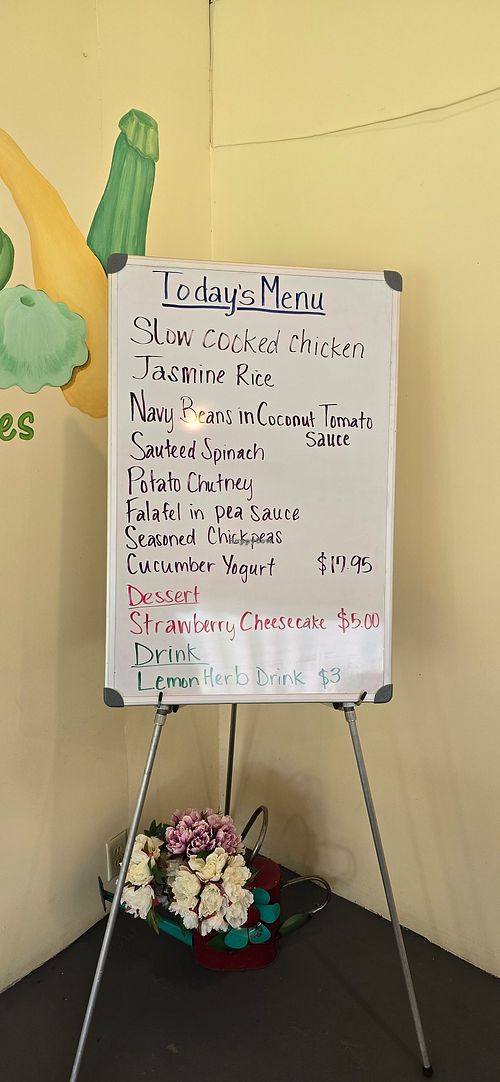 es
Today's Menu
Slow cooked chicken
Jasmine Rice
Navy Beans in Coconut Tomato
Sauce
Sauteed Spinach
Potato Chutney
Falafel in pea sauce
Seasoned Chickpeas
Cucumber Yogurt $17.95
Dessert
Strawberry Cheesecake $5.00
Drink
Lemon Herb Drink $3